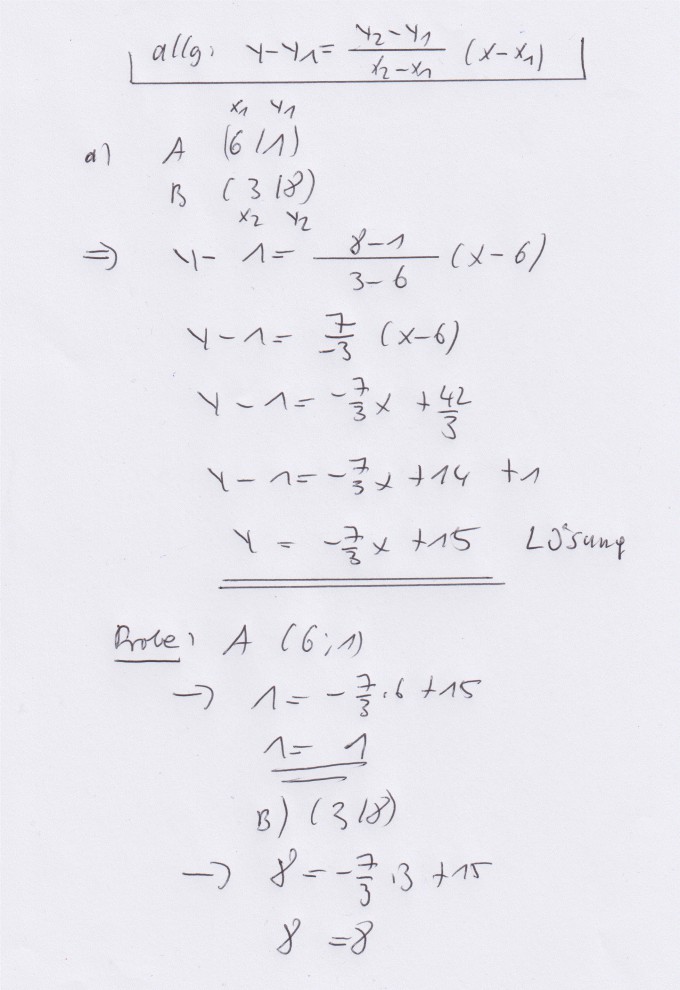 allg: y-y1= y2-y1/x2-x1 (x-x1)
x1 y1
a) A (6/1)
B (3/8)
x2 y2
=> y- 1= 8-1/3-6 (x-6)
y-1= 7/-3 (x-6)
y-1= -7/3x +42/3
y-1= -7/3x +14 +1
y = -7/3x +15 Lösung
Probe: A (6;1)
-> 1= -7/3.6 +15
1= 1
B) (3/8)
-> 8= -7/3.3 +15
8 =8